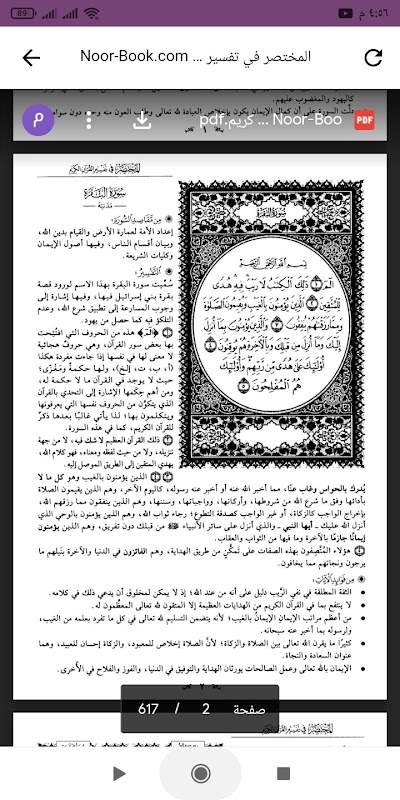 89
٤:٥٦ م
Noor-Book.com ... المختصر في تفسير
كاليهود والمغضوب عليهم.
دلّت السورة على أن كمال الإيمان يكون بإخلاص العبادة لله تعالى وطلب العون منه وحده دون سواه
م
كريم.pdf ... Noor-Boo
PDF
١
المختصر في تفسير القرآن الكريم
سورة البقرة
مدنية
من مقاصد السورة:
إعداد الأمة لعمارة الأرض والقيام بدين الله،
وبيان أقسام الناس، وفيها أصول الإيمان
وكليات الشريعة.
التفسير:
سُمِّيت سورة البقرة بهذا الاسم لورود قصة
بقرة بني إسرائيل فيها، وفيها إشارة إلى
وجوب المسارعة إلى تطبيق شرع الله، وعدم
التلكؤ فيه كما حصل من يهود.
﴿الٓمٓ﴾ هذه من الحروف التي افتُتِحت
بها بعض سور القرآن، وهي حروف هجائية
لا معنى لها في نفسها إذا جاءت مفردة هكذا
(أ، ب، ت، إلخ)، ولها حكمة ومغزى؛
حيث لا يوجد في القرآن ما لا حكمة له،
ومن أهم حِكَمها الإشارة إلى التحدي بالقرآن
الذي يتكوَّن من الحروف نفسها التي يعرفونها
ويتكلمون بها؛ لذا يأتي غالبًا بعدها ذكرٌ
للقرآن الكريم، كما في هذه السورة.
ذلك القرآن العظيم لا شك فيه، لا من جهة
تنزيله، ولا من حيث لفظه ومعناه، فهو كلام الله،
يهدي المتقين إلى الطريق الموصل إليه.
الذين يؤمنون بالغيب وهو كل ما لا
سورة البقرة
بسم الله الرحمن الرحيم
الٓمٓ ١ ذَٰلِكَ ٱلْكِتَٰبُ لَا رَيْبَ فِيهِ هُدًى
لِّلْمُتَّقِينَ ٢ ٱلَّذِينَ يُؤْمِنُونَ بِٱلْغَيْبِ وَيُقِيمُونَ ٱلصَّلَوٰةَ
وَمِمَّا رَزَقْنَٰهُمْ يُنفِقُونَ ٣ وَٱلَّذِينَ يُؤْمِنُونَ بِمَآ أُنزِلَ
إِلَيْكَ وَمَآ أُنزِلَ مِن قَبْلِكَ وَبِٱلْءَاخِرَةِ هُمْ يُوقِنُونَ ٤
أُو۟لَٰٓئِكَ عَلَىٰ هُدًى مِّن رَّبِّهِمْ وَأُو۟لَٰٓئِكَ
هُمُ ٱلْمُفْلِحُونَ ٥
يُدرك بالحواس وغاب عنّا، مما أخبر الله عنه أو أخبر عنه رسوله، كاليوم الآخر، وهم الذين يقيمون الصلاة
بأدائها وفق ما شرع الله من شروطها، وأركانها، وواجباتها، وسننها، وهم الذين ينفقون مما رزقهم الله،
بإخراج الواجب كالزكاة، أو غير الواجب كصدقة التطوع؛ رجاء ثواب الله، وهم الذين يؤمنون بالوحي الذي
أنزل الله عليك - أيها النبي - والذي أنزل على سائر الأنبياء ﷺ من قبلك دون تفريق، وهم الذين يؤمنون
إيمانًا جازمًا بالآخرة وما فيها من الثواب والعقاب.
هؤلاء المتَّصِفون بهذه الصفات على تَمكُّنٍ من طريق الهداية، وهم الفائزون في الدنيا والآخرة بنيلهم ما
يرجون ونجاتهم مما يخافون.
من فوائد الآيات:
• الثقة المطلقة في نفي الرَّيب دليل على أنه من عند الله؛ إذ لا يمكن لمخلوق أن يدعي ذلك في كلامه.
• لا ينتفع بما في القرآن الكريم من الهدايات العظيمة إلا المتقون لله تعالى المعظِّمون له.
• من أعظم مراتب الإيمانِ الإيمانُ بالغيب؛ لأنه يتضمن التسليم لله تعالى في كل ما تفرد بعلمه من الغيب،
ولرسوله بما أخبر عنه سبحانه.
• كثيرًا ما يقرن الله تعالى بين الصلاة والزكاة؛ لأنَّ الصلاة إخلاص للمعبود، والزكاة إحسان للعبيد، وهما
عنوان السعادة والنجاة.
• الإيمان بالله تعالى وعمل الصالحات يورثان الهداية والتوفيق في الدنيا، والفوز والفلاح في الأُخرى.
٢
صفحة 2 / 617
المختصر في تفسير القرآن الكريم